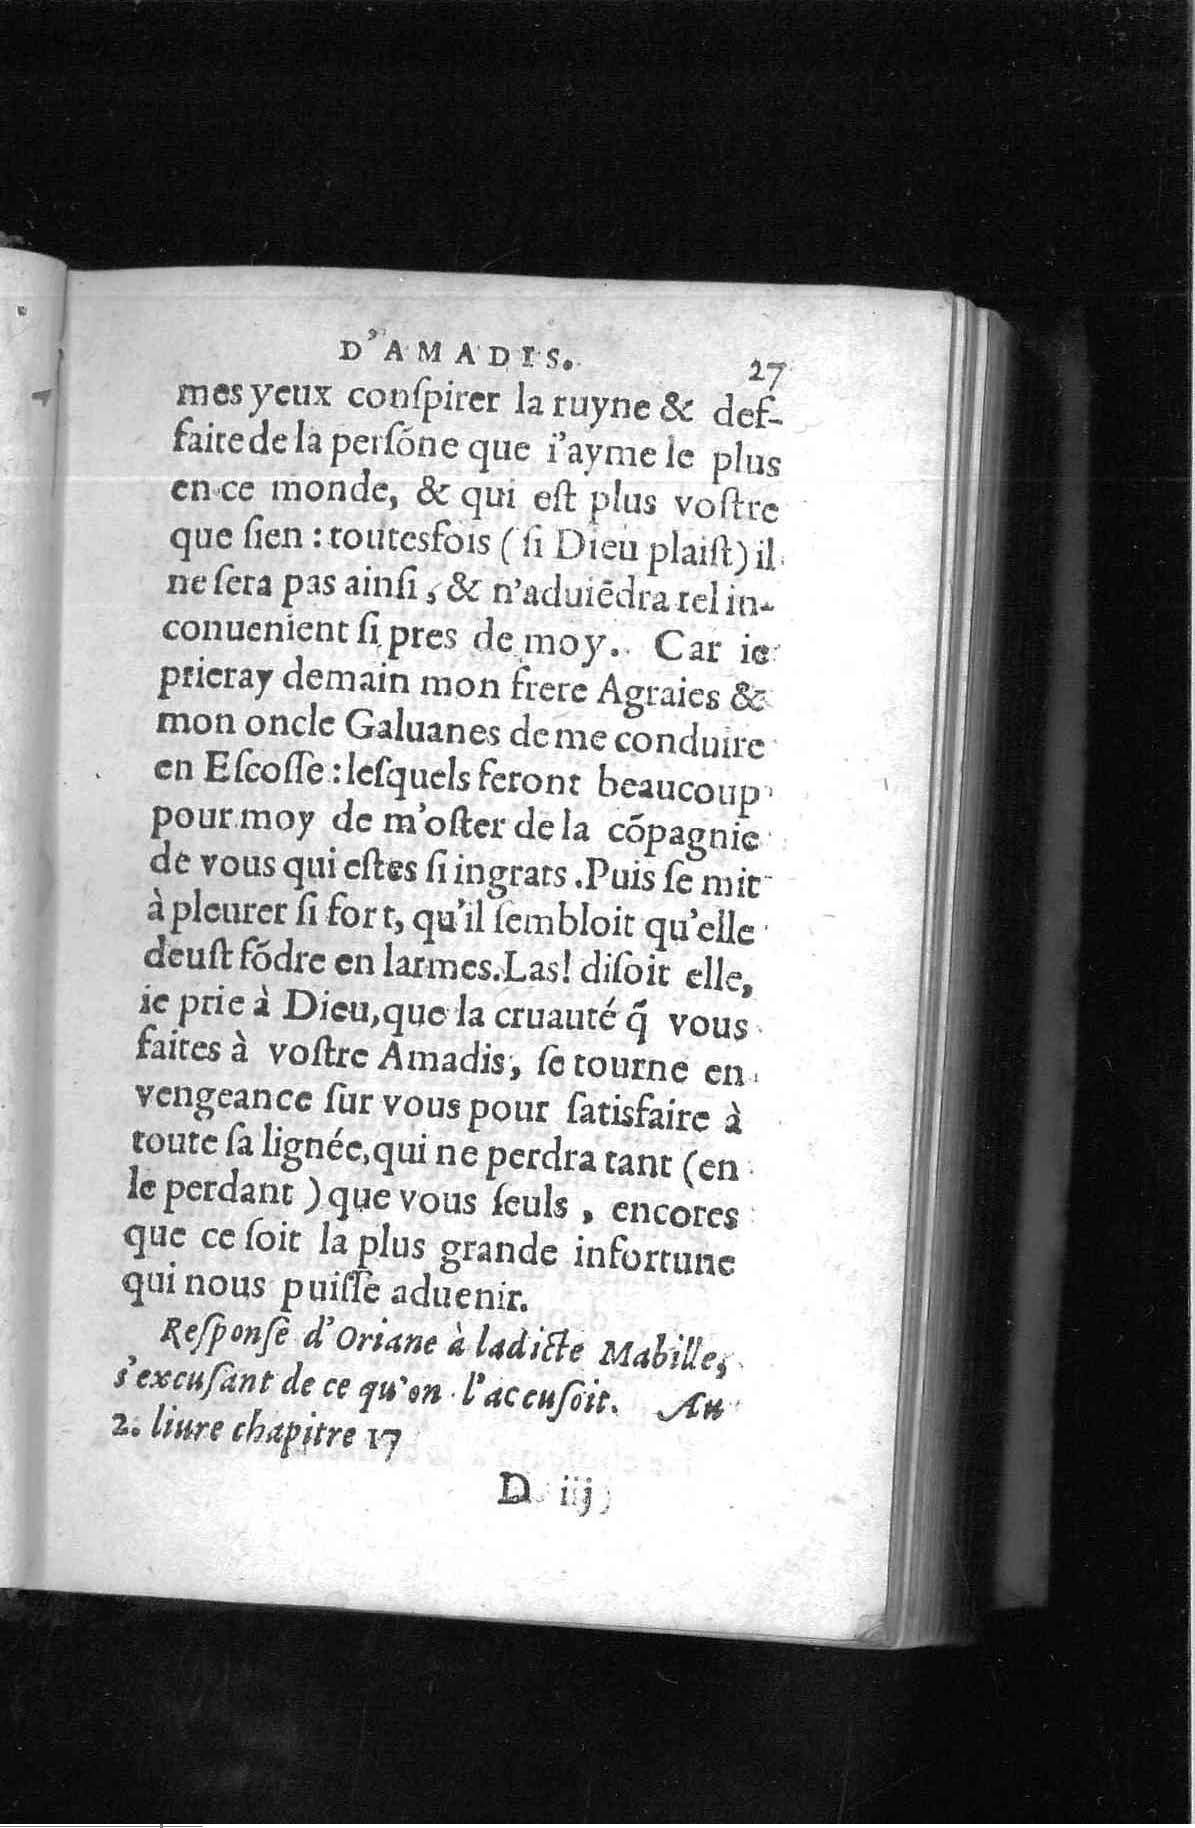 D'AMADIS. 27
mes yeux conſpirer la ruyne & def-
faite de la perſõne que i'ayme le plus
en ce monde, & qui eſt plus voſtre
que ſien : toutesfois ( ſi Dieu plaiſt) il
ne ſera pas ainſi, & n'aduiẽdra tel in-
conuenient ſi pres de moy. Car ie
prieray demain mon frere Agraies &
mon oncle Galuanes de me conduire
en Eſcoſſe : leſquels feront beaucoup
pour moy de m'oſter de la cõpagnie
de vous qui eſtes ſi ingrats. Puis ſe mit
à pleurer ſi fort, qu'il ſembloit qu'elle
deuſt fõdre en larmes. Las! diſoit elle,
ie prie à Dieu, que la cruauté q̃ vous
faites à voſtre Amadis, ſe tourne en
vengeance ſur vous pour ſatisfaire à
toute ſa lignée, qui ne perdra tant (en
le perdant ) que vous ſeuls , encores
que ce ſoit la plus grande infortune
qui nous puiſſe aduenir.
Reſponſe d'Oriane à ladicte Mabille,
s'excuſant de ce qu'on l'accuſoit. Au
2. liure chapitre 17
D iij